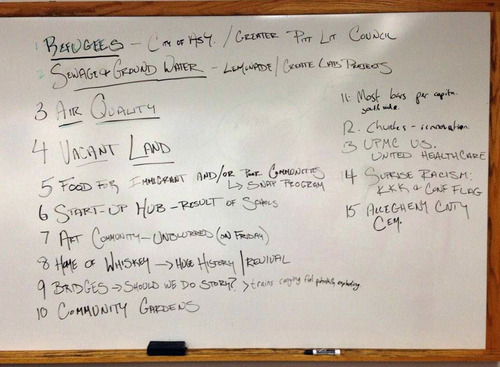 1 REFUGEES - CITY OF ASY. / GREATER PITT LIT COUNCIL
2 SEWAGE & GROUND WATER - LEMONADE / CREATE LAB PROJECTS
3 AIR QUALITY
4 VACANT LAND
5 FOOD FOR IMMIGRANT AND/OR POOR COMMUNITIES
↳ SNAP PROGRAM
6 START-UP HUB - RESULT OF SCHOOLS
7 ART COMMUNITY - UNBLURRED (ON FRIDAY)
8 HOME OF WHISKEY → HUGE HISTORY / REVIVAL
9 BRIDGES → SHOULD WE DO STORY? > trains carrying fuel potentially exploding
10 COMMUNITY GARDENS
11. Most bars per capita.
12. Churches - renovation
3 UPMC VS.
UNITED HEALTHCARE
14 SUPRISE RACISM:
K.K.K & CONF FLAG
15 ALLEGHENY CNTY
CEM.